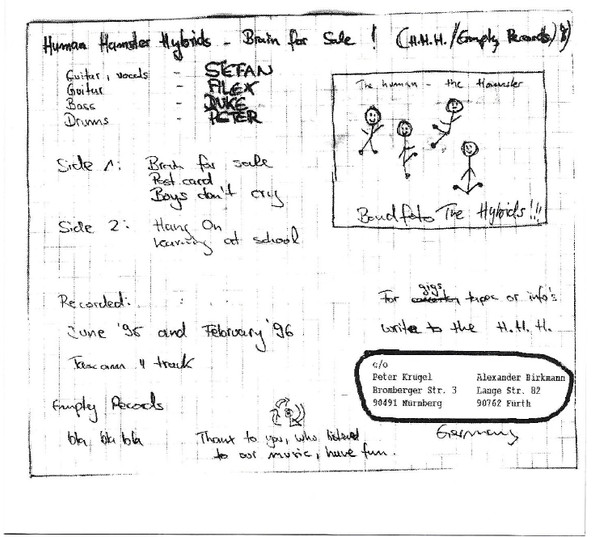 Human Hamster Hybrids - Brain for Sale! (H.H.H./Empty Records)
Guitar, vocals - STEFAN
Guitar - ALEX
Bass - DUKE
Drums - PETER
The human - the Hamster
Bandfoto The Hybrids!!!
Side 1: Brain for sale
Post card
Boys don't cry
Side 2: Hang On
learning at school
Recorded:
June '95 and February '96
4 track
For gigs tapes or info's
write to the H.H.H.
c/o
Peter Krugel Alexander Birkmann
Bromberger Str. 3 Lange Str. 82
90491 Nürnberg 90762 Fürth
Germany
Empty Records
bla bla bla
Thanx to you, who listened
to our music, have fun.